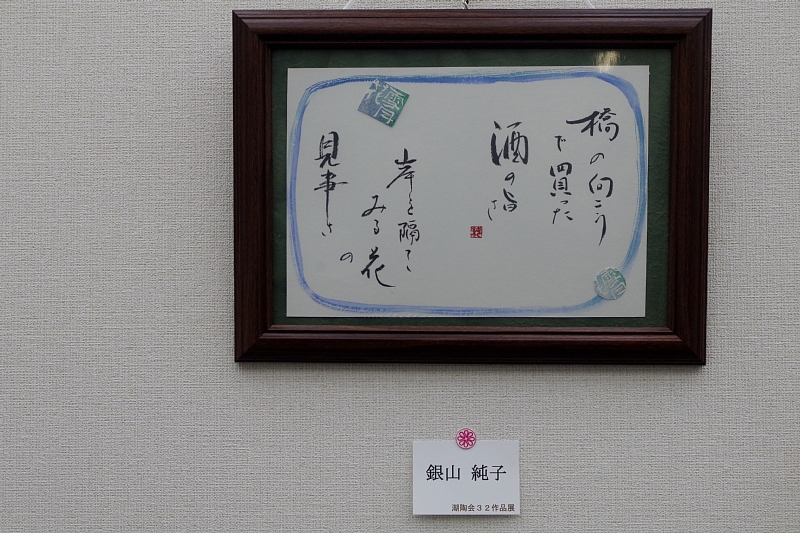 橋の向こう
で買った
酒の旨さ
岸を隔てゝ
みる花の
見事さ
雪月花
銀山 純子
湖陶会32作品展